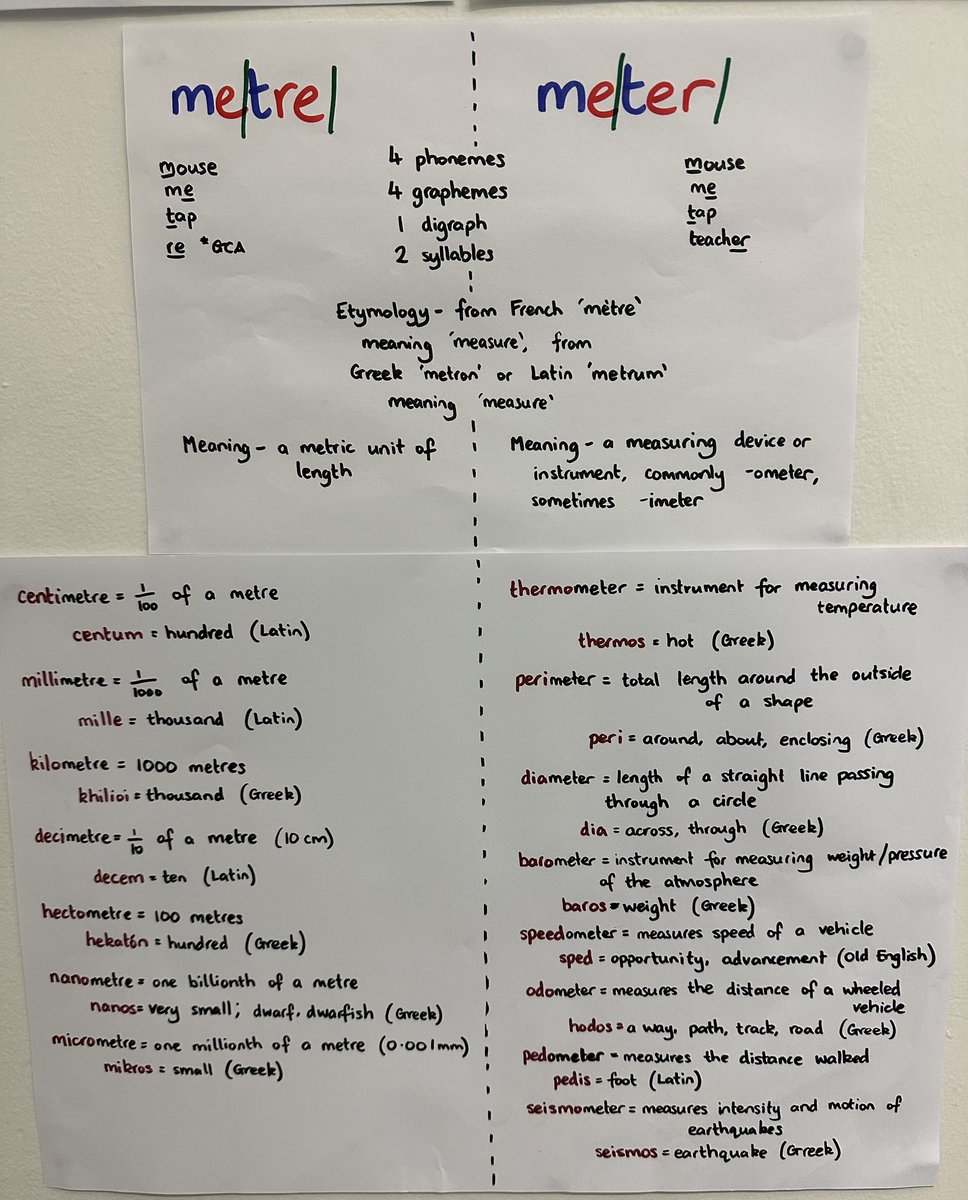 me/tre/
mouse
me
tap
re *GCA
4 phonemes
4 graphemes
1 digraph
2 syllables
me/ter/
mouse
me
tap
teacher
Etymology - from French 'mètre'
meaning 'measure', from
Greek 'metron' or Latin 'metrum'
meaning 'measure'
Meaning - a metric unit of
length
Meaning - a measuring device or
instrument, commonly -ometer,
sometimes -imeter
centimetre = 1/100 of a metre
centum = hundred (Latin)
millimetre = 1/1000 of a metre
mille = thousand (Latin)
kilometre = 1000 metres
khilioi = thousand (Greek)
decimetre = 1/10 of a metre (10 cm)
decem = ten (Latin)
hectometre = 100 metres
hekatón = hundred (Greek)
nanometre = one billionth of a metre
nanos = very small; dwarf, dwarfish (Greek)
micrometre = one millionth of a metre (0.001mm)
mikros = small (Greek)
thermometer = instrument for measuring
temperature
thermos = hot (Greek)
perimeter = total length around the outside
of a shape
peri = around, about, enclosing (Greek)
diameter = length of a straight line passing
through a circle
dia = across, through (Greek)
barometer = instrument for measuring weight/pressure
of the atmosphere
baros = weight (Greek)
speedometer = measures speed of a vehicle
sped = opportunity, advancement (Old English)
odometer = measures the distance of a wheeled
vehicle
hodos = a way, path, track, road (Greek)
pedometer = measures the distance walked
pedis = foot (Latin)
seismometer = measures intensity and motion of
earthquakes
seismos = earthquake (Greek)